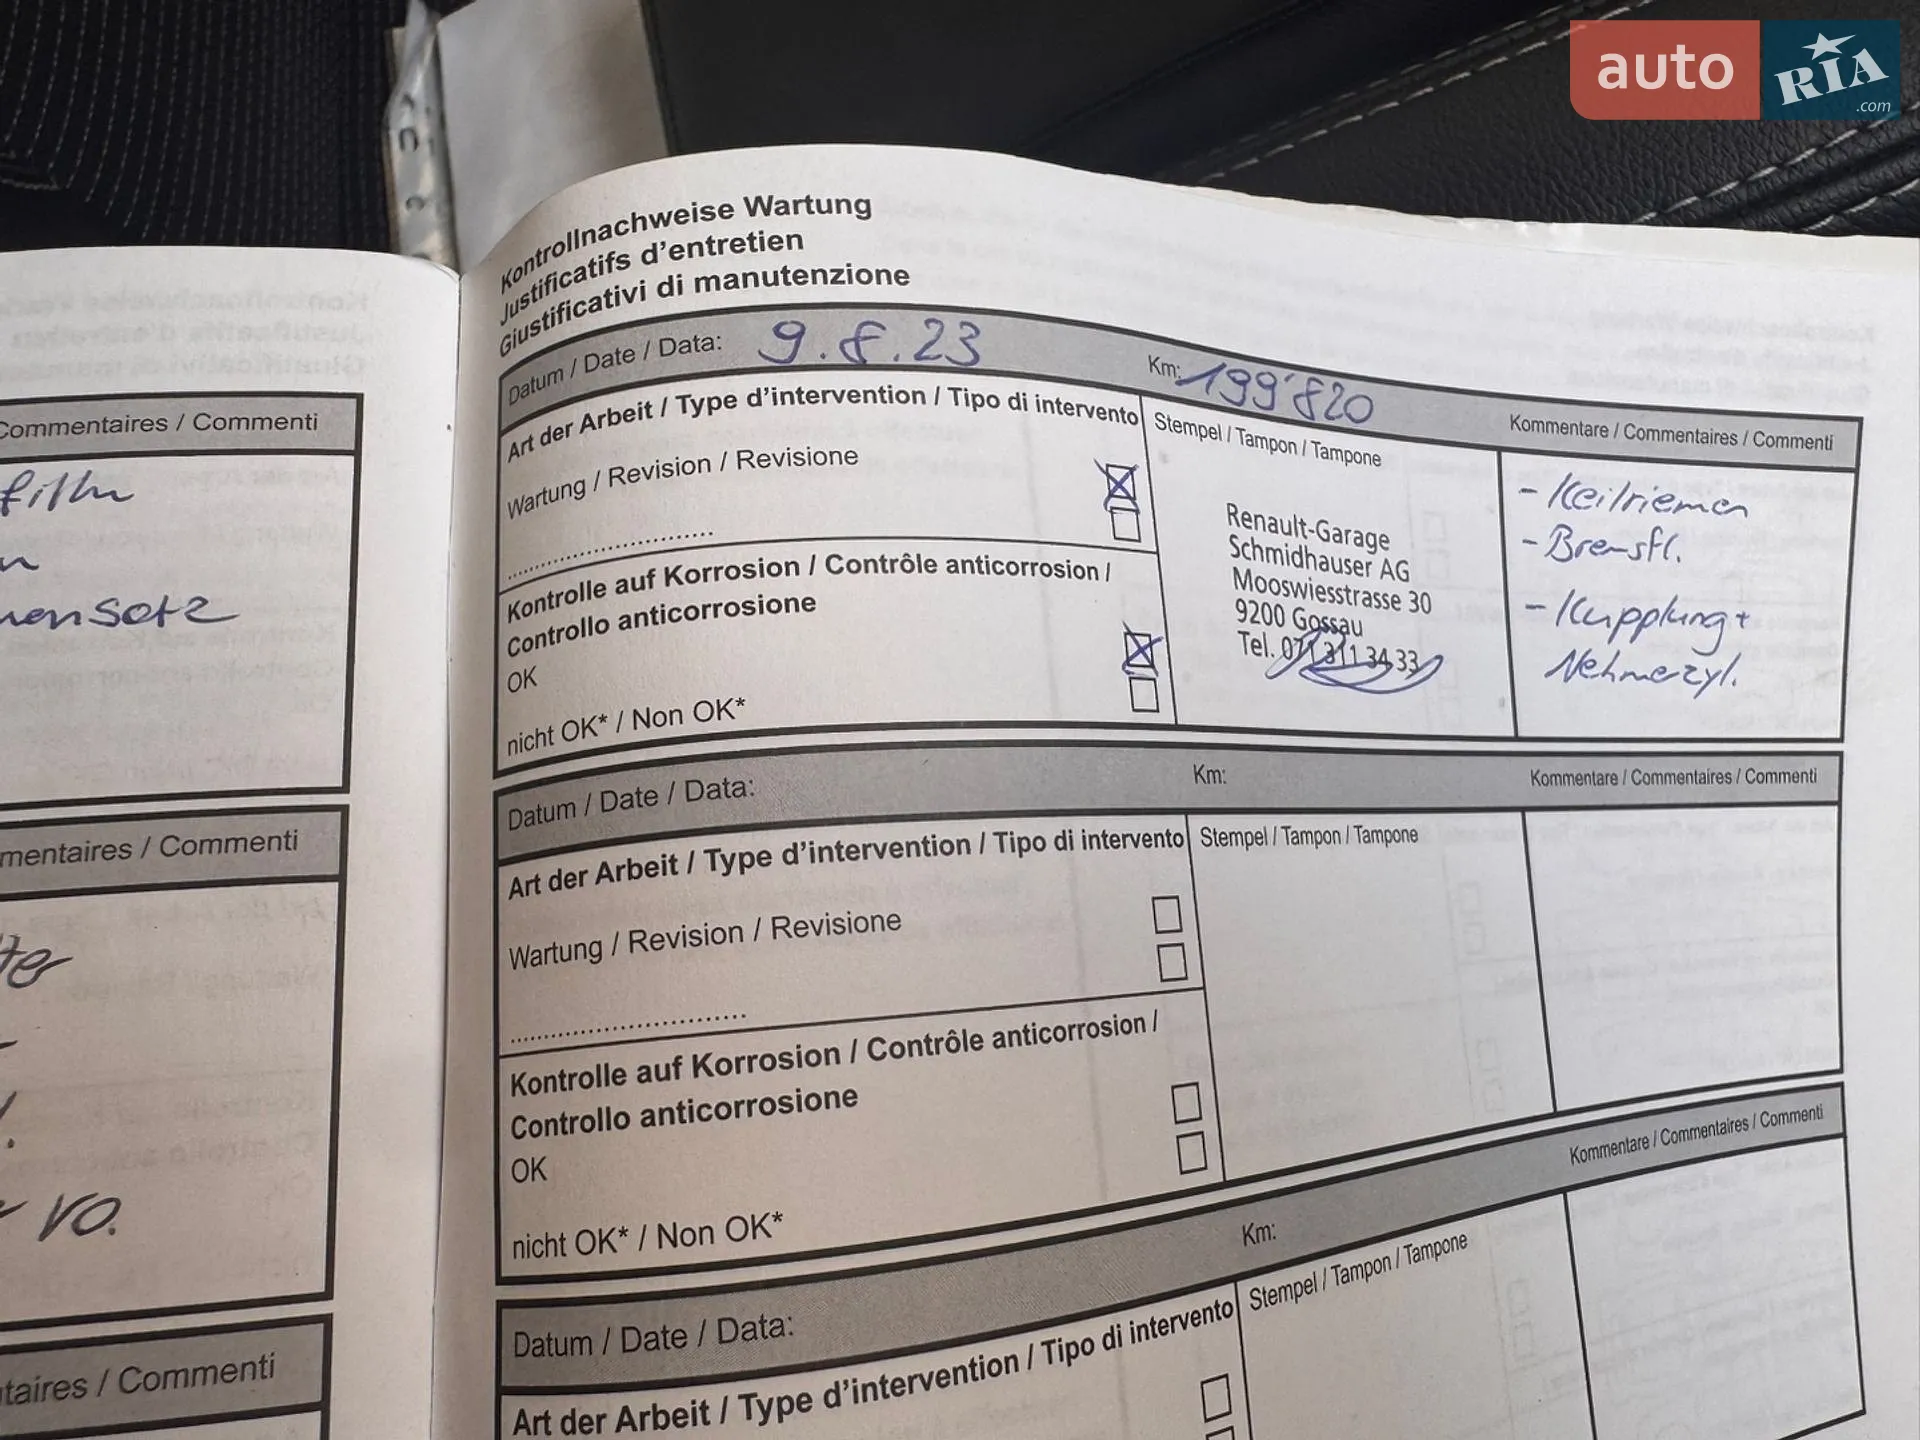 auto RIA .com
Commentaires / Commenti
mentaires / Commenti
ter
VO.
taires / Commenti
Kontrollnachweise Wartung
Justificatifs d'entretien
Giustificativi di manutenzione
Datum / Date / Data: 9.8.23 Km: 199'820 Kommentare / Commentaires / Commenti
Art der Arbeit / Type d'intervention / Tipo di intervento Stempel / Tampon / Tampone
Wartung / Revision / Revisione
Kontrolle auf Korrosion / Contrôle anticorrosion /
Controllo anticorrosione
OK
nicht OK* / Non OK*
Renault-Garage
Schmidhauser AG
Mooswiesstrasse 30
9200 Gossau
Tel. 071 311 34 33
- Keilriemen
- Bremsfl.
- Kupplung +
Nehmerzyl.
Datum / Date / Data: Km: Kommentare / Commentaires / Commenti
Art der Arbeit / Type d'intervention / Tipo di intervento Stempel / Tampon / Tampone
Wartung / Revision / Revisione
Kontrolle auf Korrosion / Contrôle anticorrosion /
Controllo anticorrosione
OK
nicht OK* / Non OK*
Datum / Date / Data: Km: Kommentare / Commentaires / Commenti
Art der Arbeit / Type d'intervention / Tipo di intervento Stempel / Tampon / Tampone